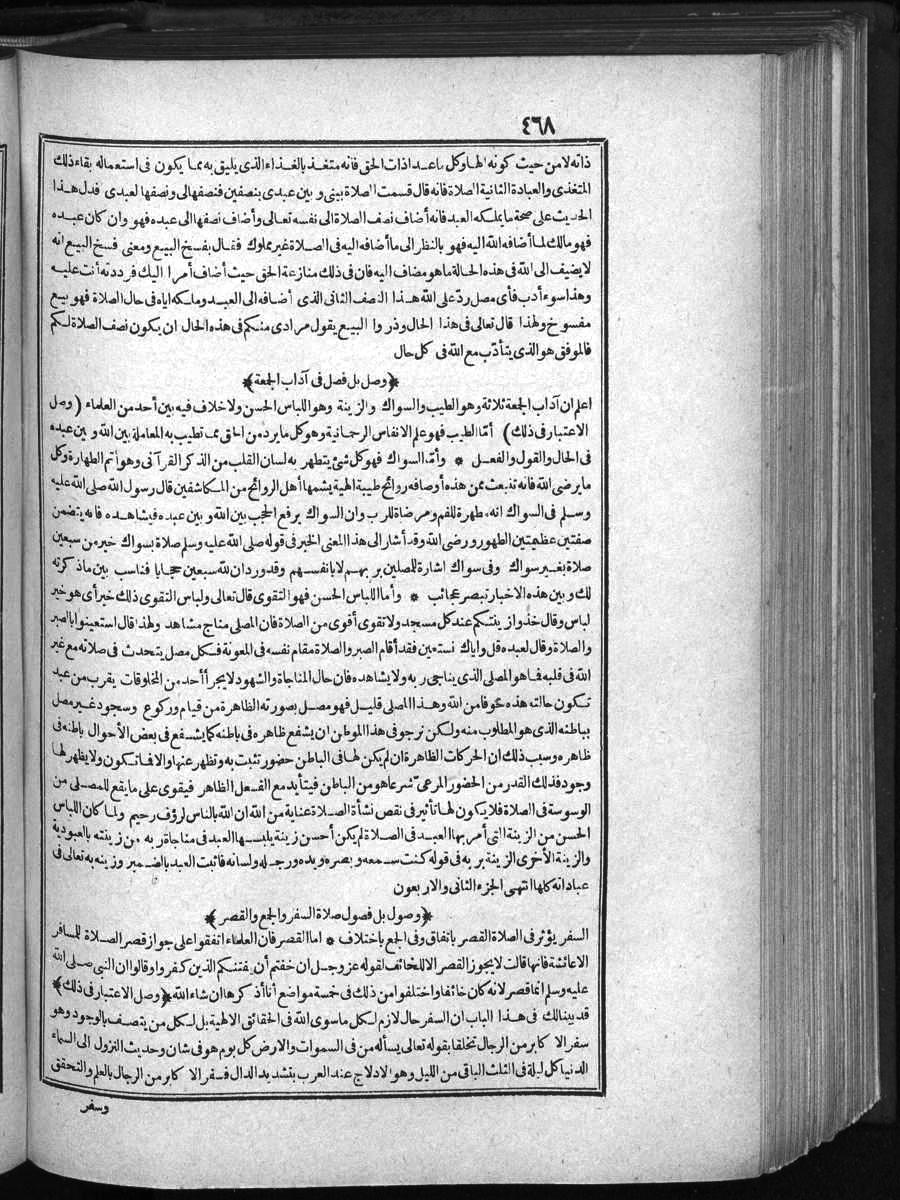 ٤٦٨
ذاته لا من حيث كونه الها وكل ما عدا ذات الحق فانه متغذ بالغذاء الذى يليق به مما يكون فى استعماله بقاء ذلك
المتغذى والعبادة الثانية الصلاة فانه قال قسمت الصلاة بينى و بين عبدى بنصفين فنصفها لى ونصفها لعبدى فدل هذا
الحديث على صحة ما يملكه العبد فانه أضاف نصف الصلاة الى نفسه تعالى وأضاف نصفها الى عبده فهو وان كان عبده
فهو مالك لما أضافه الله اليه فهو بالنظر الى ما أضافه اليه فى الصلاة غير مملوك فقال بفسخ البيع ومعنى فسخ البيع انه
لا يضيف الى الله فى هذه الحالة ما هو مضاف اليه فان فى ذلك منازعة الحق حيث أضاف أمرا اليك فرددته أنت عليه
وهذا سوء أدب فأى مصل ردّ على الله هذا النصف الثانى الذى أضافه الى العبد وملكه اياه فى حال الصلاة فهو بيع
مفسوخ ولهذا قال تعالى فى هذا الحال وذروا البيع يقول مرادى منكم فى هذه الحال ان يكون نصف الصلاة لكم
فالموفق هو الذى يتأدّب مع الله فى كل حال
﴿وصل بل فصل فى آداب الجمعة﴾
اعلم ان آداب الجمعة ثلاثة وهو الطيب والسواك والزينة وهو اللباس الحسن ولا خلاف فيه بين أحد من العلماء (وصل
الاعتبار فى ذلك) أمّا الطيب فهو علم الانفاس الرحمانية وهو كل ما يرد من الحق مما تطيب به المعاملة بين الله و بين عبده
فى الحال والقول والفعل * وأمّا السواك فهو كل شئ يتطهر به لسان القلب من الذكر القرآنى وهو أتم الطهارة وكل
ما يرضى الله فانه تنبعث ممن هذه أوصافه روائح طيبة الهية يشمها أهل الروائح من المكاشفين قال رسول الله صلى الله عليه
وسلم فى السواك انه مطهرة للفم ومرضاة للرب وان السواك يرفع الحجب بين الله و بين عبده فيشاهده فانه يتضمن
صفتين عظيمتين الطهور ورضى الله وقد أشار الى هذا المعنى الخبر فى قوله صلى الله عليه وسلم صلاة بسواك خير من سبعين
صلاة بغير سواك وفى سواك اشارة للمصلين بربهم لا بانفسهم وقد ورد ان لله سبعين حجابا فناسب بين ما ذكرته
لك و بين هذه الاخبار تبصر عجائب * وأما اللباس الحسن فهو التقوى قال تعالى ولباس التقوى ذلك خير أى هو خير
لباس وقال خذوا زينتكم عند كل مسجد ولا تقوى أقوى من الصلاة فان المصلى مناج مشاهد ولهذا قال استعينوا بالصبر
والصلاة وقال لعبده قل واياك نستعين فقد أقام الصبر والصلاة مقام نفسه فى المعونة فكل مصل يتحدث فى صلاته مع غير
الله فى قلبه فما هو المصلى الذى يناجى ربه ولا يشاهده فان حال المناجاة والشهود لا يجرأ أحد من المخلوقات يقرب من عبد
تكون حالته هذه خوفا من الله وهذا المصلى قليل فهو مصل بصورته الظاهرة من قيام وركوع وسجود غير مصل
بباطنه الذى هو المطلوب منه ولكن نرجو فى هذا الموطن ان يشفع ظاهره فى باطنه كما يشفع فى بعض الأحوال باطنه فى
ظاهره وسبب ذلك ان الحركات الظاهرة ان لم يكن لها فى الباطن حضور تثبت به وتظهر عنها والا فما تكون ولا يظهر لها
وجود فذلك القدر من الحضور المرعىّ شرعا هو من الباطن فيتأيد مع الفعل الظاهر فيقوى على ما يقع للمصلى من
الوسوسة فى الصلاة فلا يكون لها تأثير فى نقص نشأة الصلاة عناية من الله ان الله بالناس لرؤف رحيم ولما كان اللباس
الحسن من الزينة التى أمر بها العبد فى الصلاة لم يكن أحسن زينة يلبسها العبد فى مناجاة ربه من زينته بالعبودية
والزينة الأخرى الزينة بربه فى قوله كنت سمعه وبصره ويده ورجله ولسانه فاثبت العبد بالضمير وزينه به تعالى فى
عباداته كلها انتهى الجزء الثانى والاربعون
﴿وصول بل فصول صلاة السفر والجمع والقصر﴾
السفر يؤثر فى الصلاة القصر باتفاق وفى الجمع باختلاف * اما القصر فان العلماء اتفقوا على جواز قصر الصلاة للمسافر
الا عائشة فانها قالت لا يجوز القصر الا للخائف لقوله عز وجل ان خفتم أن يفتنكم الذين كفروا وقالوا ان النبى صلى الله
عليه وسلم انما قصر لانه كان خائفا واختلفوا من ذلك فى خمسة مواضع أنا أذكرها ان شاء الله ﴿وصل الاعتبار فى ذلك﴾
قد بينا لك فى هذا الباب ان السفر حال لازم لكل ما سوى الله فى الحقائق الالهية بل لكل من يتصف بالوجود وهو
سفر الاكابر من الرجال تخلقا بقوله تعالى يسأله من فى السموات والارض كل يوم هو فى شان وحديث النزول الى السماء
الدنيا كل ليلة فى الثلث الباقى من الليل وهو الادلاج عند العرب بتشديد الدال فسفر الاكابر من الرجال بالعلم والتحقق
وسفر